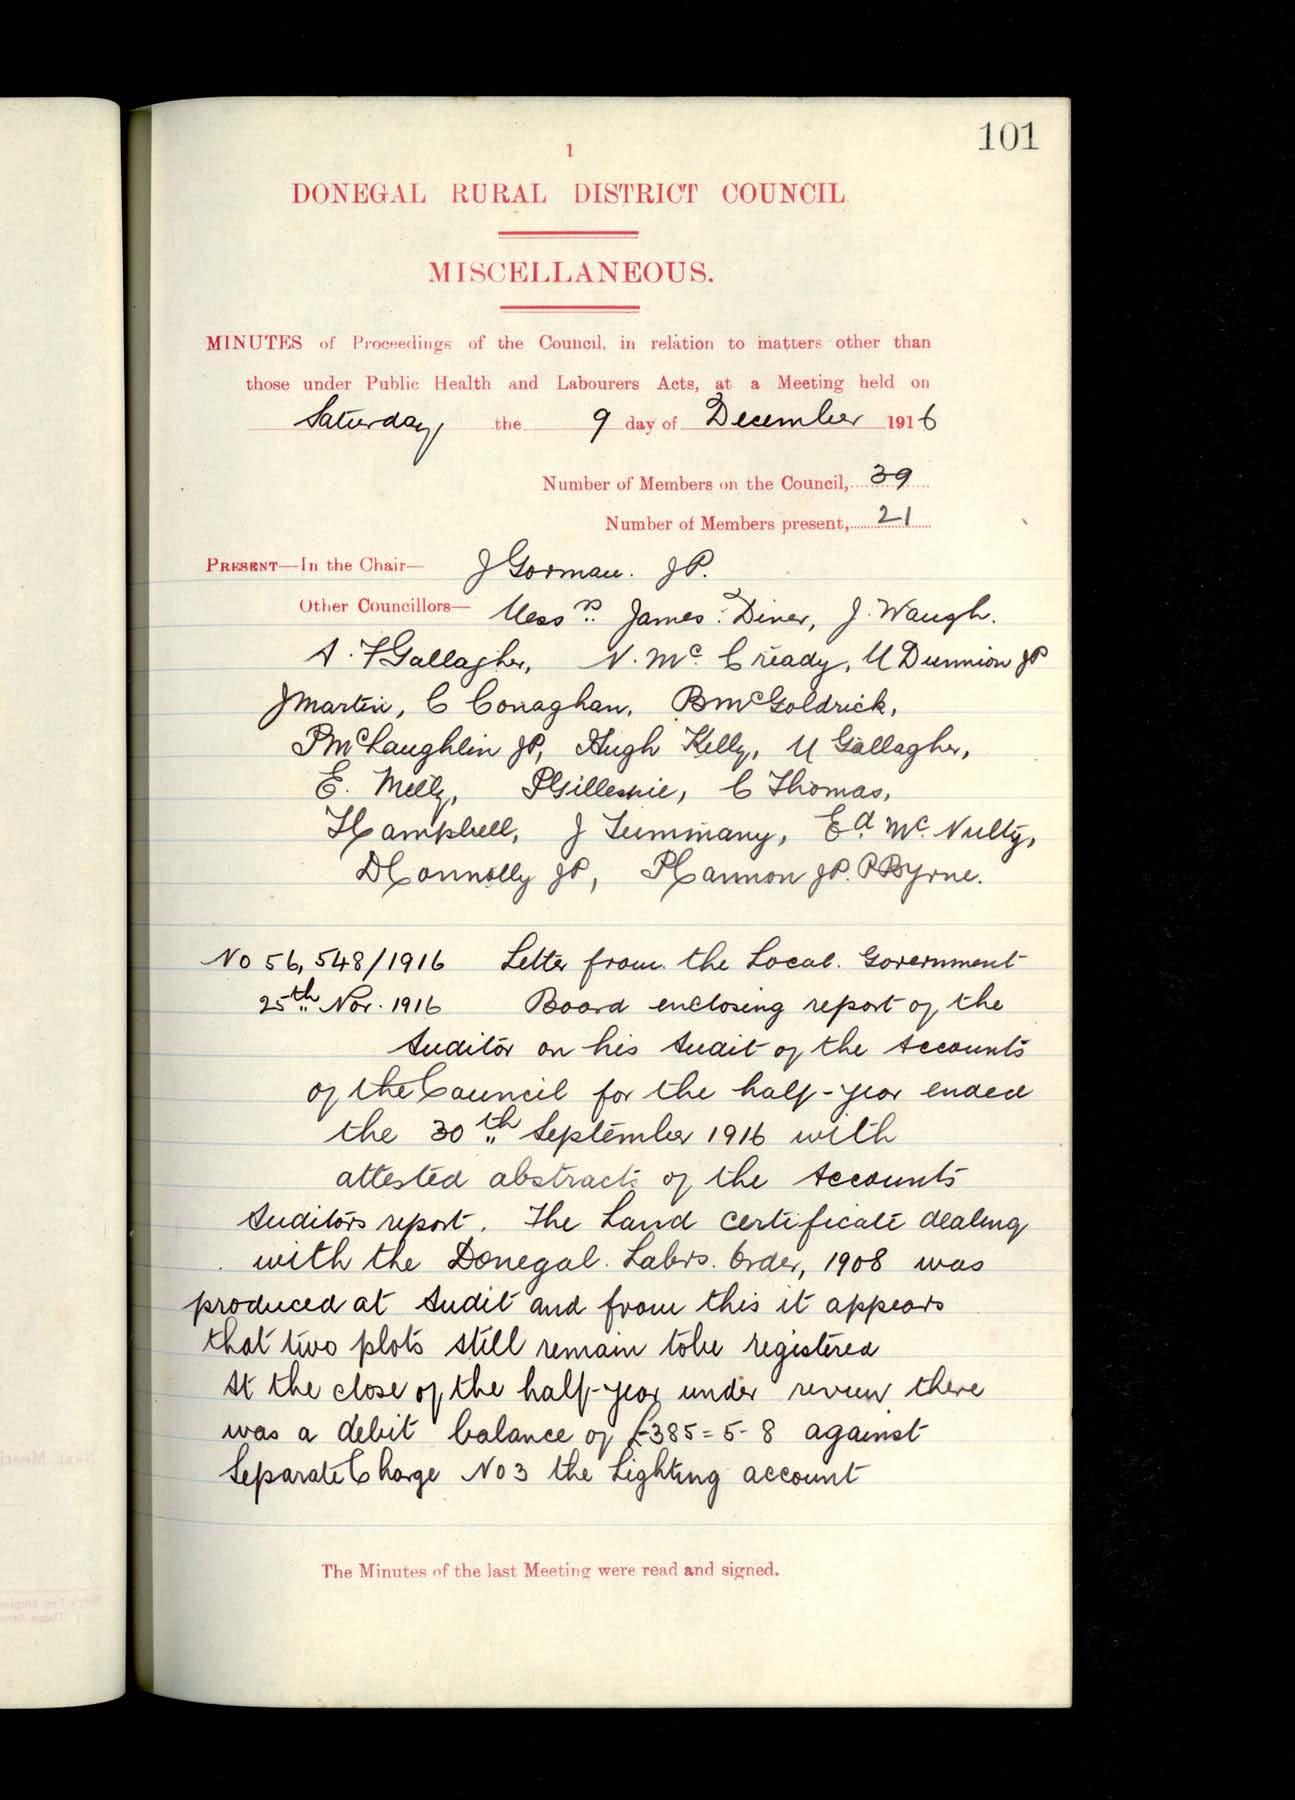 101
1
DONEGAL RURAL DISTRICT COUNCIL
MISCELLANEOUS.
MINUTES of Proceedings of the Council, in relation to matters other than
those under Public Health and Labourers Acts, at a Meeting held on
Saturday the 9 day of December 1916
Number of Members on the Council, 39
Number of Members present, 21
PRESENT—In the Chair— J Gorman. JP.
Other Councillors— Messrs. James Diver, J. Waugh.
A. F Gallagher, N. Mc. Cready, M Dunnion JP
J Martin, C Conaghan, B McGoldrick,
P McLaughlin JP, Hugh Kelly, M Gallagher,
E. Melly, P Gillespie, C Thomas,
T Campbell, J Tummany, Ed. Mc. Nulty,
D Connolly JP, P Cannon JP. P Byrne.
No 56,548/1916 Letter from the Local Government
25th Nov. 1916 Board enclosing report of the
Auditor on his Audit of the Accounts
of the Council for the half-year ended
the 30th September 1916 with
attested abstracts of the Accounts
Auditors report. The Land certificate dealing
with the Donegal Labrs. Order, 1908 was
produced at Audit and from this it appears
that two plots still remain to be registered
At the close of the half-year under review there
was a debit balance of £385=5-8 against
Separate Charge No 3 the Lighting account
The Minutes of the last Meeting were read and signed.